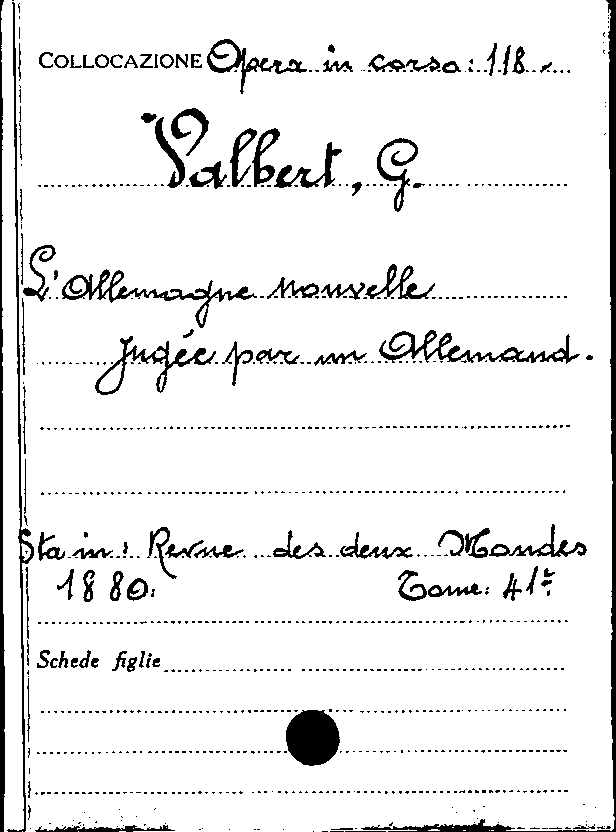 COLLOCAZIONE Opera in corso: 118.
Valbert, G.
L'Allemagne nouvelle
jugée par un Allemand.
Sta in: Revue des deux Mondes
1880. Tome: 41e.
Schede figlie